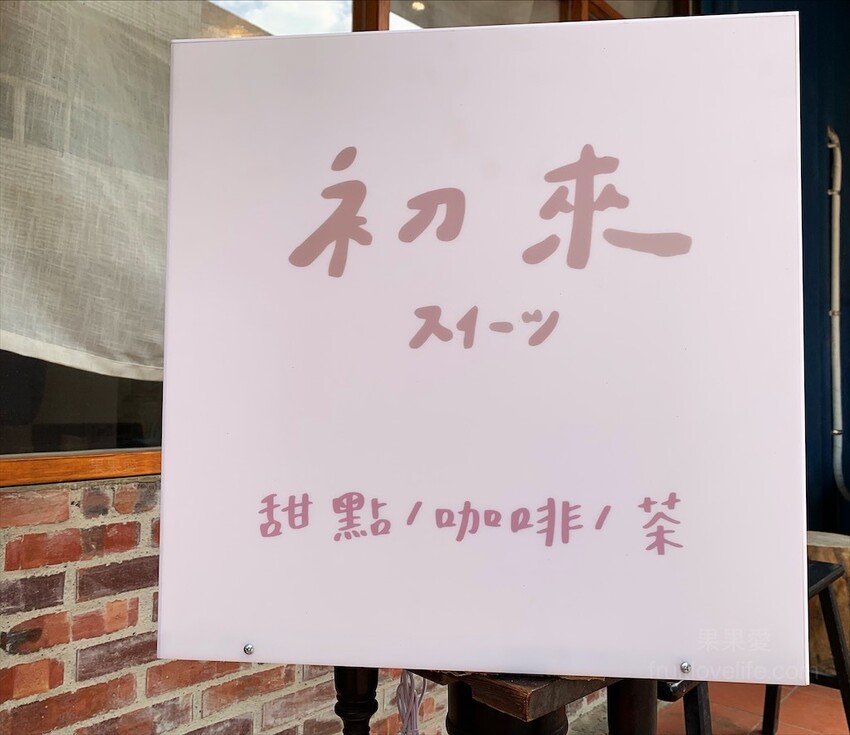 初來
スイーツ
甜點/咖啡/茶
果果愛
fruitlovelife.com